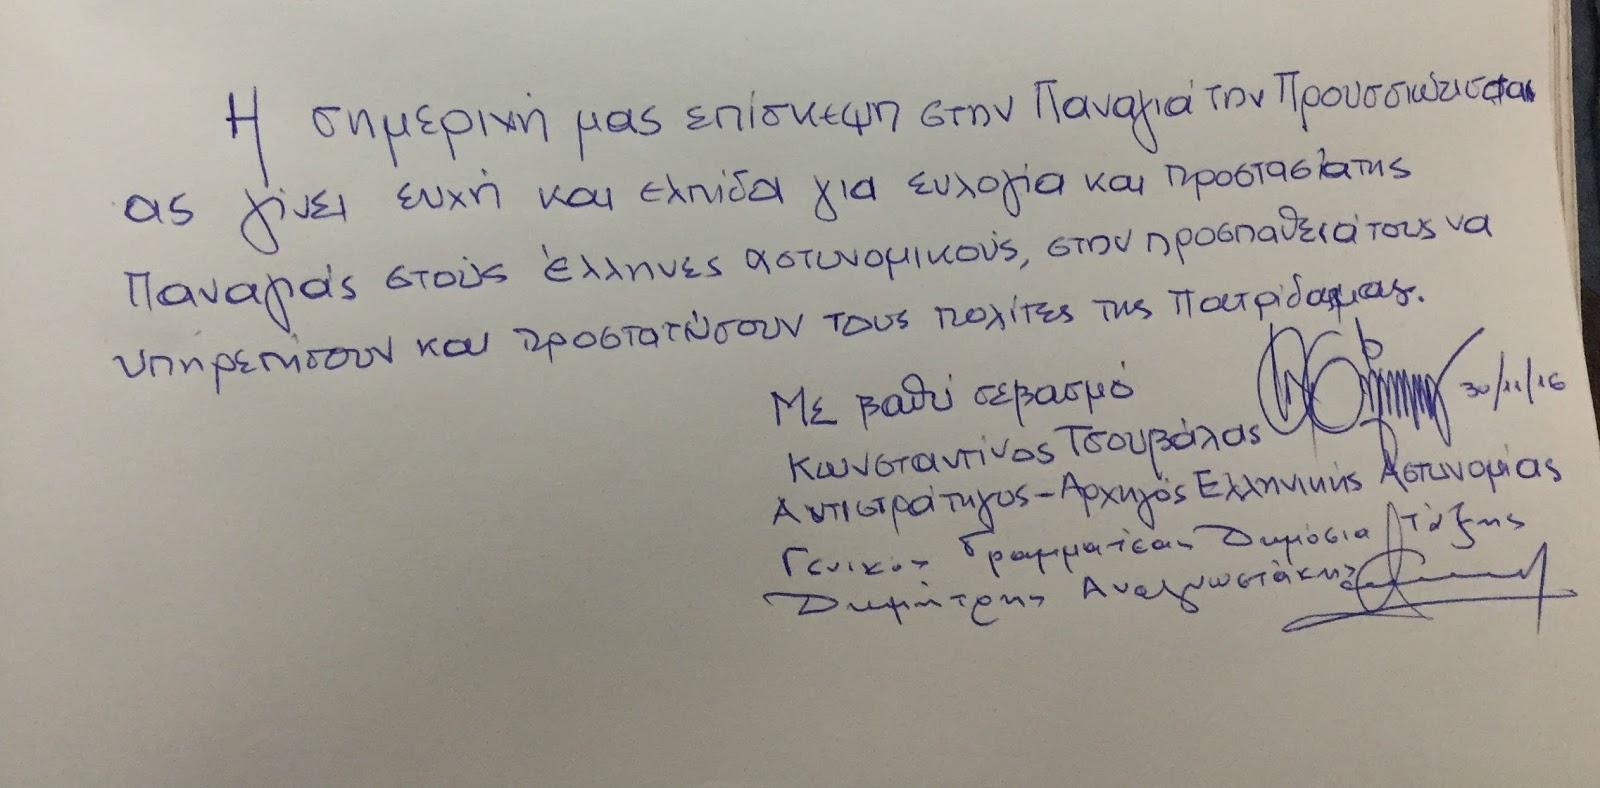 Η σημερινή μας επίσκεψη στην Παναγιά την Προυσσιώτισσα
ας γίνει ευχή και ελπίδα για ευλογία και προστασία της
Παναγιάς στούς Έλληνες αστυνομικούς, στην προσπάθειά τους να
υπηρετήσουν και προστατεύσουν τους πολίτες της Πατρίδα μας.
Με βαθύ σεβασμό
30/11/16
Κωνσταντίνος Τσουβάλας
Αντιστράτηγος - Αρχηγός Ελληνικής Αστυνομίας
Γενικός Γραμματέας Δημόσια Τάξης
Δημήτρης Αναγνωστάκης